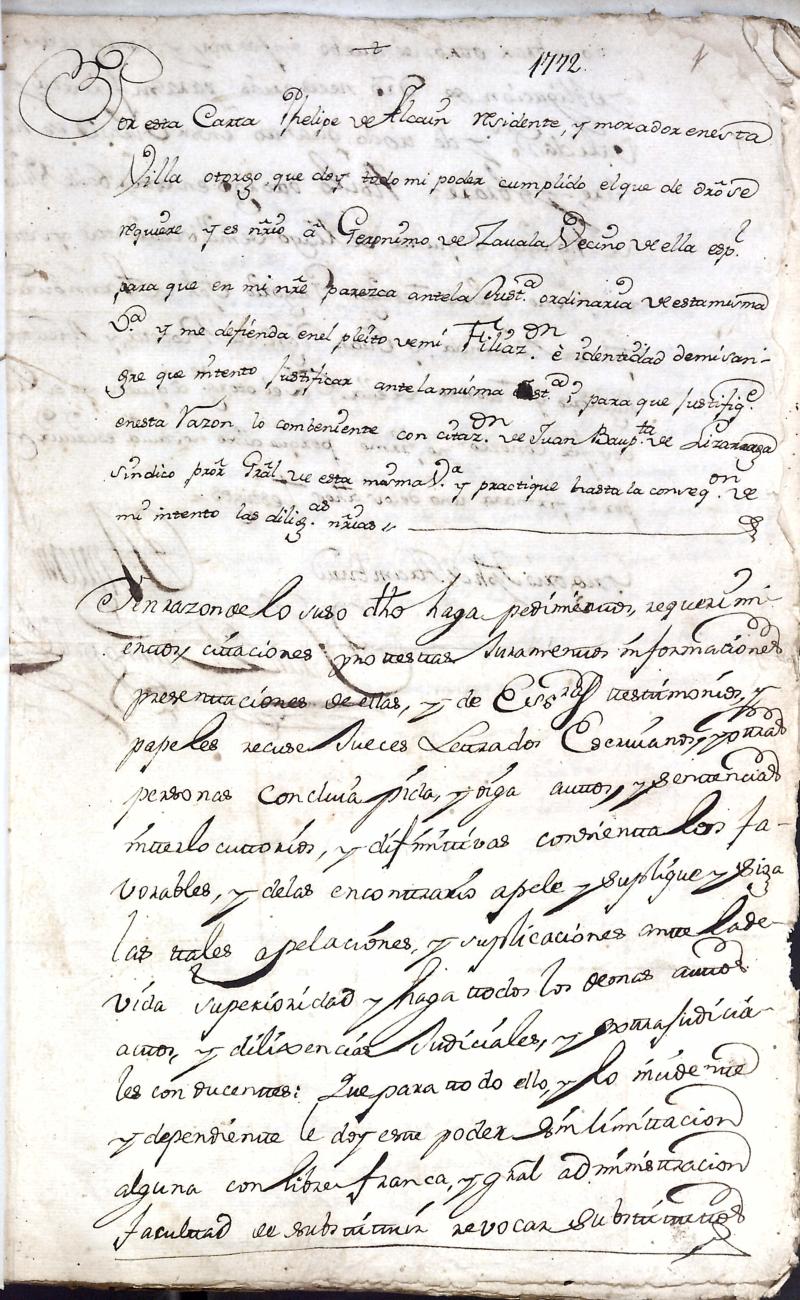 1772
1
Por esta Carta Phelipe de Alcain residente, y morador en esta
Villa otorgo que doy todo mi poder cumplido el que de dro se
requiere y es nrio â Geronimo de Zavala Vecino de ella espl.
para que en mi nre parezca ante la Justa. ordinaria de esta misma
Va. y me defienda en el pleito de mi Filiazon. è identidad de mi san-
gre que intento justificar ante la misma Justa. i para que justifiqe.
en esta razon lo combeniente con citazon. de Juan Baupta. de Lizarraga
sindico pror Gral de esta misma Va. y practique hasta la conseqon. de
mi intento las dilixas. nrias
Sin razon de lo suso dho haga pedimentos, requerimi-
entos, citaciones protestas Juramentos informaciones
presentaciones de ellas, y de Essras testimonios, y
papeles recuse Jueces Letrados Escrivanos, y otras
personas concluia pida, y oiga autos, y sentencias
interlocutorios, y difinitivas consienta los fa-
vorables, y de las encontrario apele y suplique y siga
las tales apelaciones, y suplicaciones ante la de-
vida superioridad y haga todos los demas autos
actos, y dilixencias Judiciales, y extrajudicia-
les conducentes: Que para todo ello, y lo incidente
y dependiente le doy este poder sin limitacion
alguna con libre franca, y gral administracion
facultad de substituir revocar substitutos